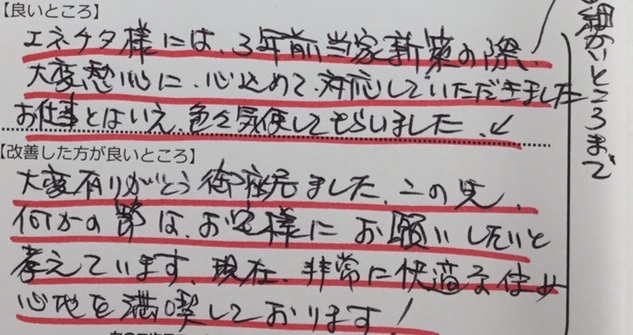 【良いところ】
エネチタ様には、3年前当家新築の際、
大変懇心に、心込めて、対応していただきました
お仕事とはいえ、色々気使してもらいました。
細かいところまで
【改善した方が良いところ】
大変有りがとう御座居ました、この先、
何かの節は、お宅様にお願いしたいと
考えています、現在、非常に快適な住み
心地を満喫しております!